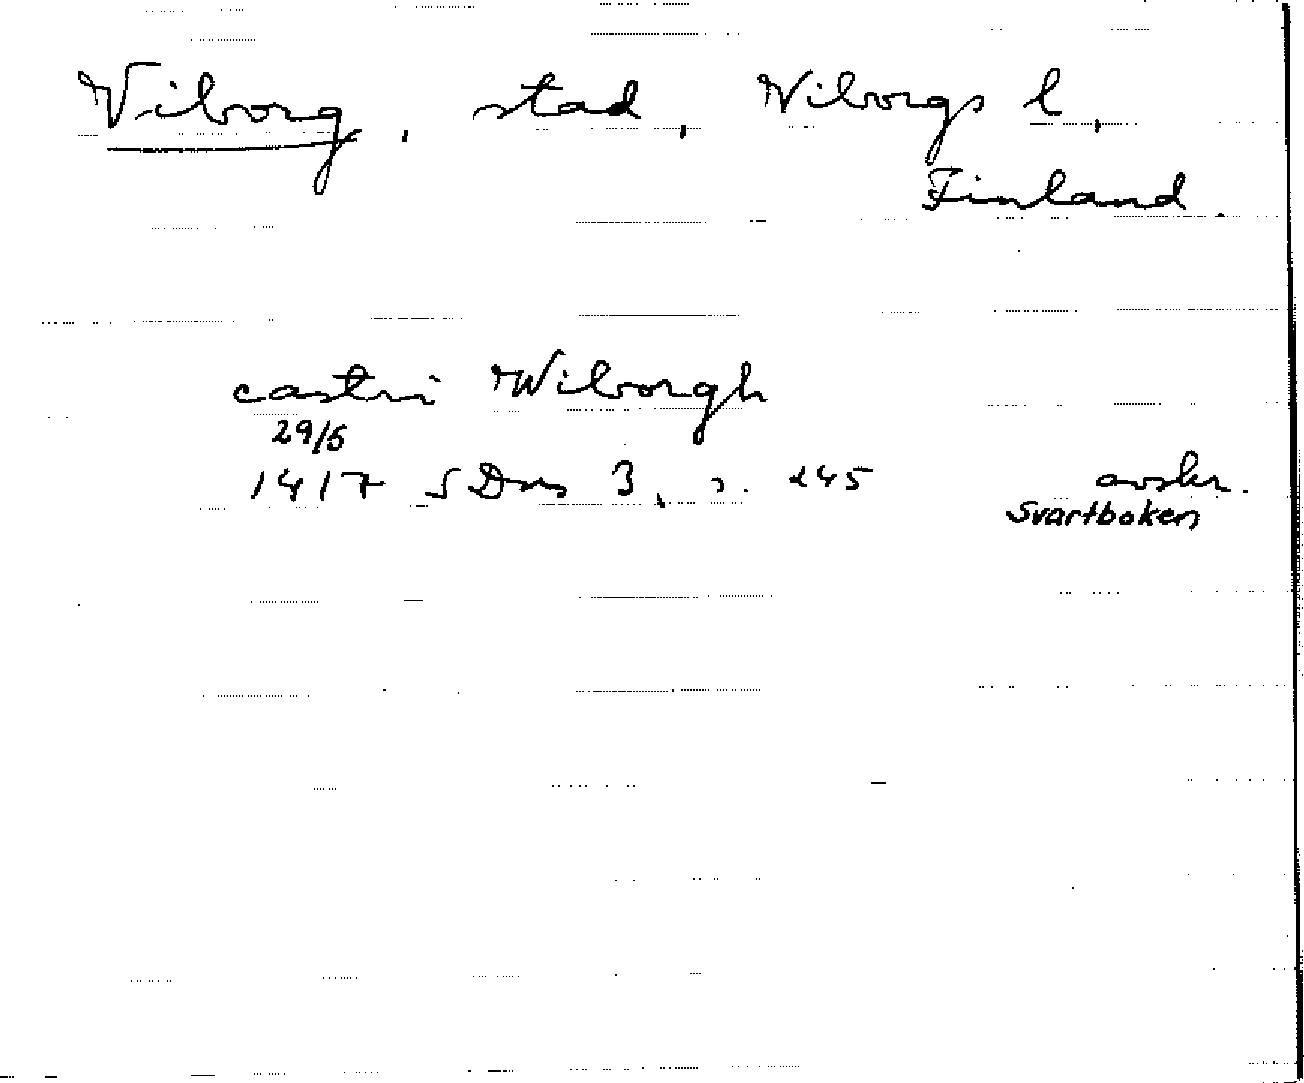 Viborg, stad, Viborgs l,
Finland.
castri Wiborgh
29/6
1417 SDns 3, s. 245 avskr.
Svartboken